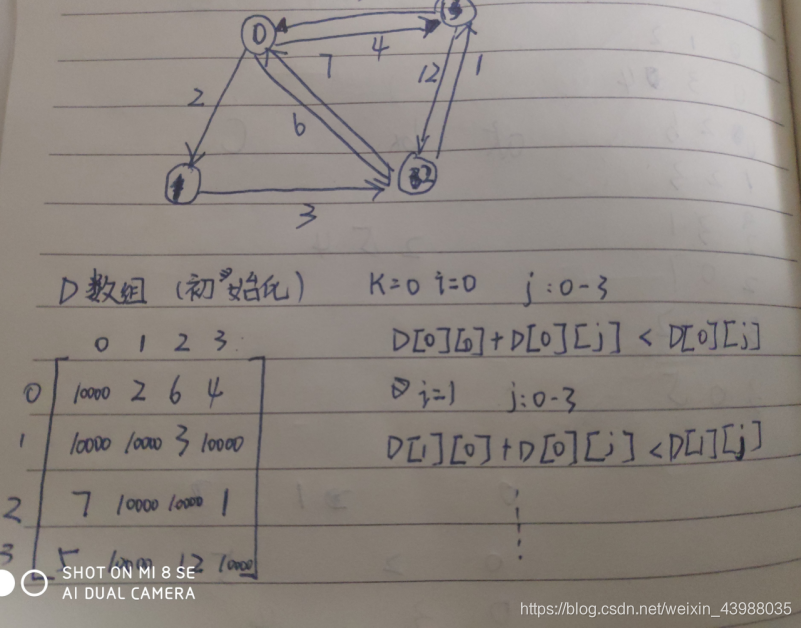 0
7 4
12 1
2
6
1 2
3
D数组 (初始化) K=0 i=0 j:0-3
0 1 2 3
D[0][0]+D[0][j] < D[0][j]
0 10000 2 6 4
i=1 j:0-3
1 10000 10000 3 10000
D[1][0]+D[0][j] < D[1][j]
2 7 10000 10000 1
3 5 10000 12 10000
SHOT ON MI 8 SE
AI DUAL CAMERA
https://blog.csdn.net/weixin_43988035